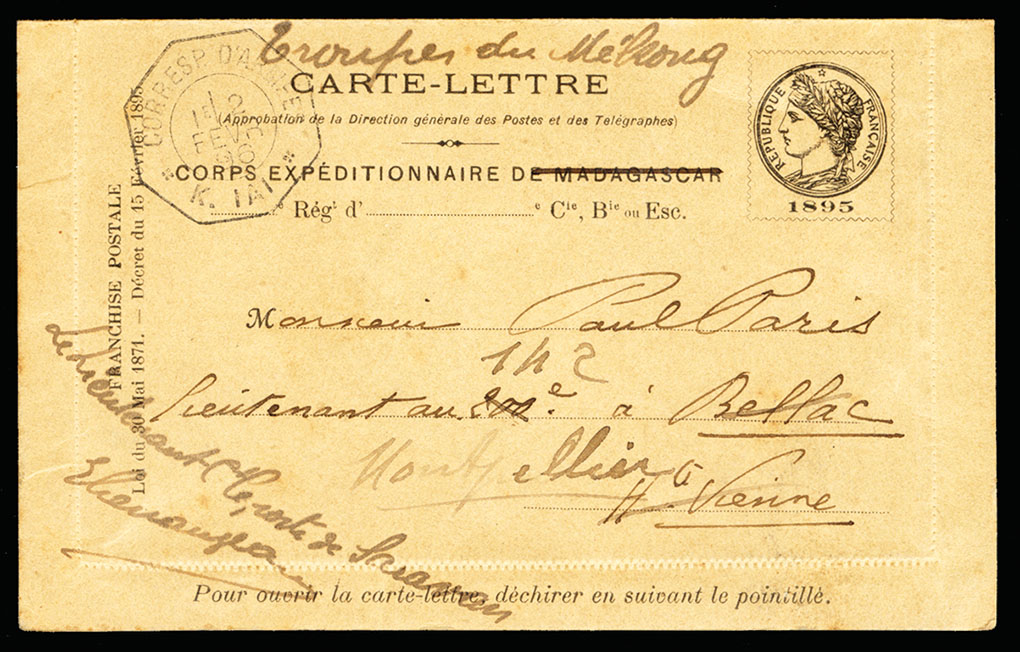 Troupes du Mékong
CARTE-LETTRE
(Approbation de la Direction générale des Postes et des Télégraphes)
CORPS EXPÉDITIONNAIRE DE MADAGASCAR
e Régt d' e Cie, Bie ou Esc.
CORRESP. D'ARMÉES
12
FEVR
96
K. TAI
RÉPUBLIQUE FRANÇAISE
1895
FRANCHISE POSTALE
Loi du 30 Mai 1871. — Décret du 15 Février 1895.
Monsieur Paul Paris
142
lieutenant au e à Bellac
Montpellier
Hte Vienne
Le Lieutenant poste de
Pour ouvrir la carte-lettre, déchirer en suivant le pointillé.